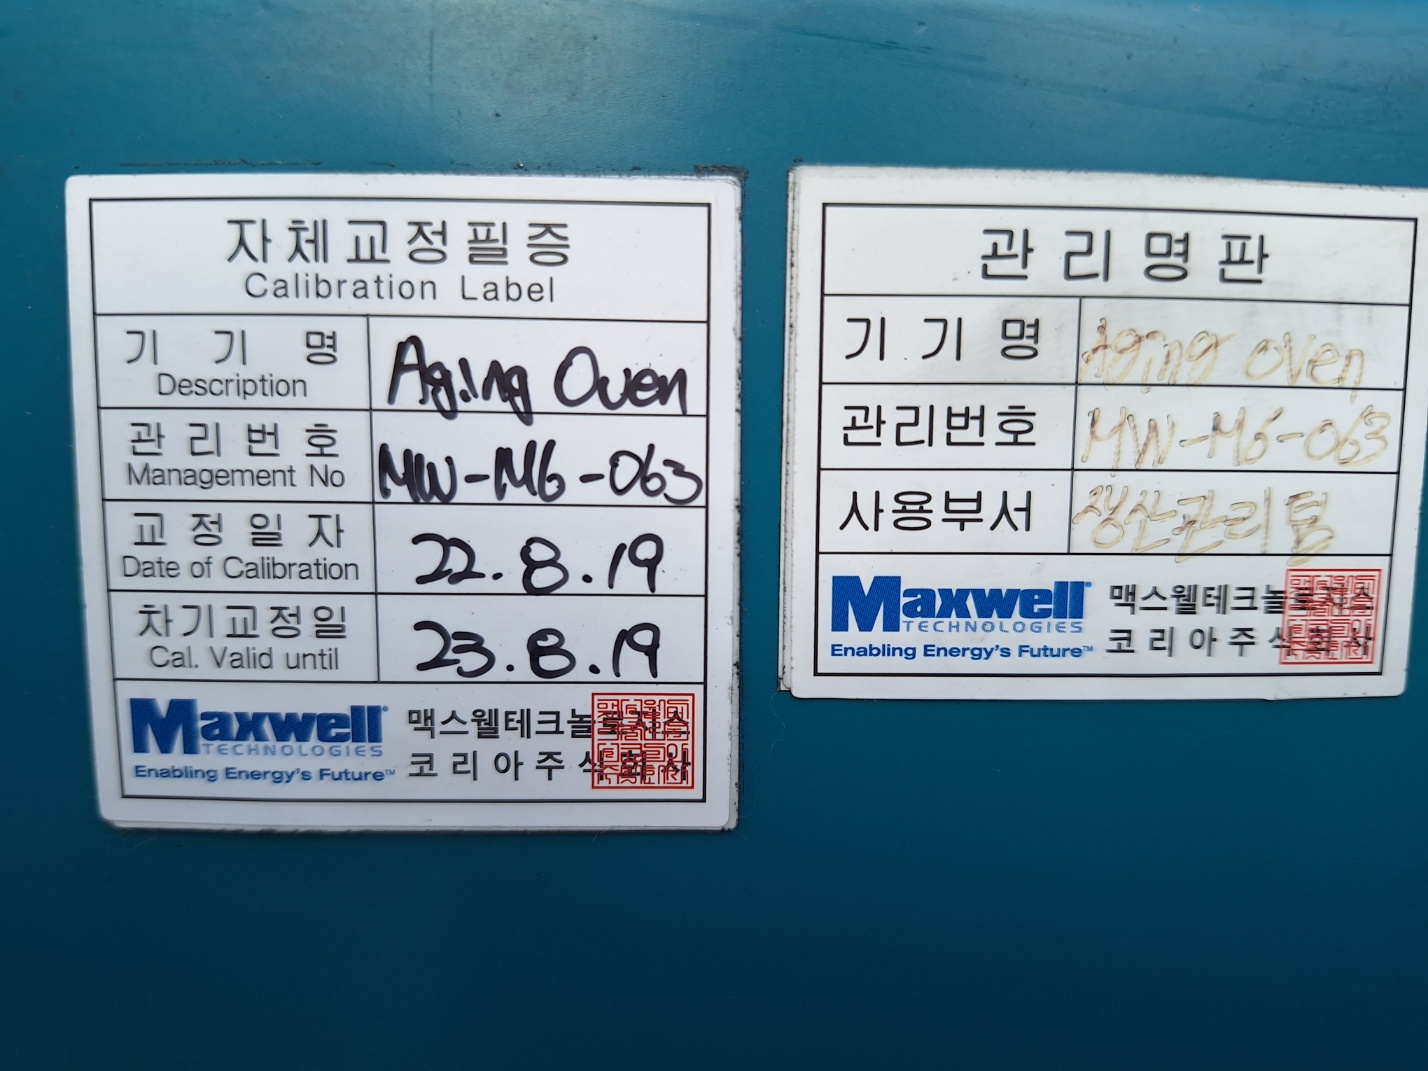 자체교정필증
Calibration Label
기 기 명
Description
Aging Oven
관리번호
Management No
MW-M6-063
교정일자
Date of Calibration
22.8.19
차기교정일
Cal. Valid until
23.8.19
Maxwell
TECHNOLOGIES
Enabling Energy's Future™
맥스웰테크놀로지스
코리아주식회사
관리명판
기 기 명
Aging Oven
관리번호
MW-M6-063
사용부서
생산관리팀
Maxwell
TECHNOLOGIES
Enabling Energy's Future™
맥스웰테크놀로지스
코리아주식회사